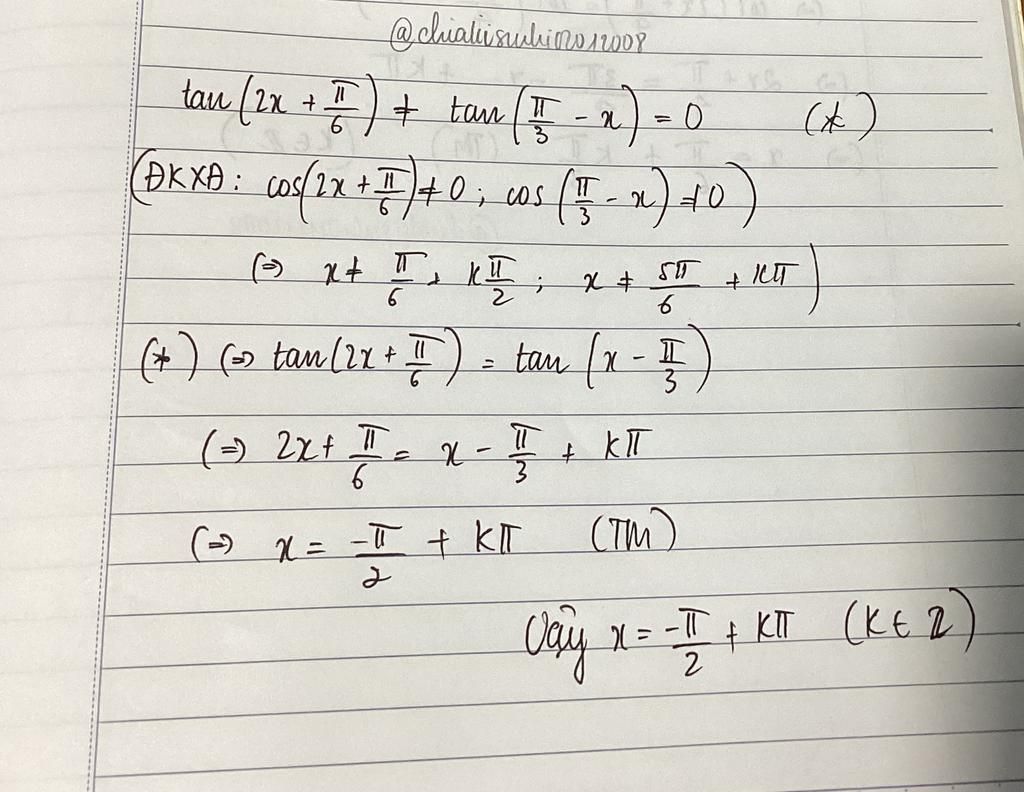 @chialiisuhi02012008
tan(2x + π/6) + tan(π/3 - x) = 0 (*)
(ĐKXĐ: cos(2x + π/6) ≠ 0; cos(π/3 - x) ≠ 0)
(=) x ≠ π/6 + kπ/2; x ≠ 5π/6 + kπ)
(*) (=) tan(2x + π/6) = tan(x - π/3)
(=) 2x + π/6 = x - π/3 + kπ
(=) x = -π/2 + kπ (TM)
Vậy x = -π/2 + kπ (k ∈ Z)